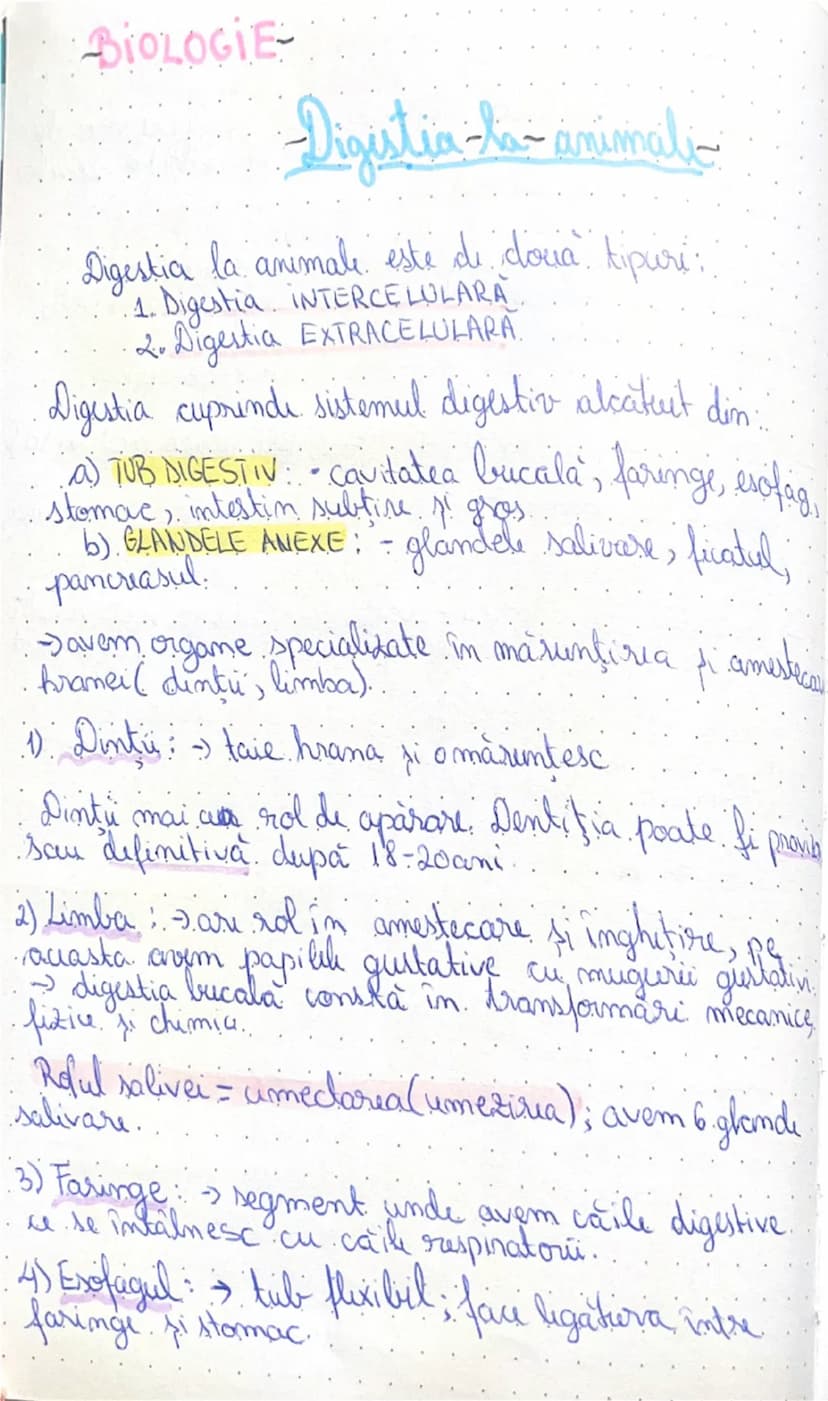 -BiOLOGiE-
-Digestia-la-animale-
Digestia la animale este de două tipuri:
1. Digestia INTERCELULARĂ
2. Digestia EXTRACELULARĂ.
Digestia cuprinde sistemul digestiv alcătuit din:
a) TUB DIGESTIV: - cavitatea bucală, faringe, esofag,
stomac, intestin subțire și gros
b) GLANDELE ANEXE: - glandele salivare, ficatul,
pancreasul.
→ avem organe specializate în mărunțirea și amestecar
hranei (dinții, limba).
1) Dinții: → taie hrana și o mărunțesc
Dinții mai au rol de apărare. Dentiția poate fi proviz
sau definitivă după 18-20 ani.
2) Limba: → are rol în amestecare și înghițire, pe
aceasta avem papilele gustative cu mugurii gustativi.
→ digestia bucală constă în transformări mecanice,
fizice și chimice.
Rolul salivei = umectarea (umezirea); avem 6 glande
salivare.
3) Faringe: → segment unde avem căile digestive
ce se întâlnesc cu căile respiratorii.
4) Esofagul: → tub flexibil; face legătura între
faringe și stomac.